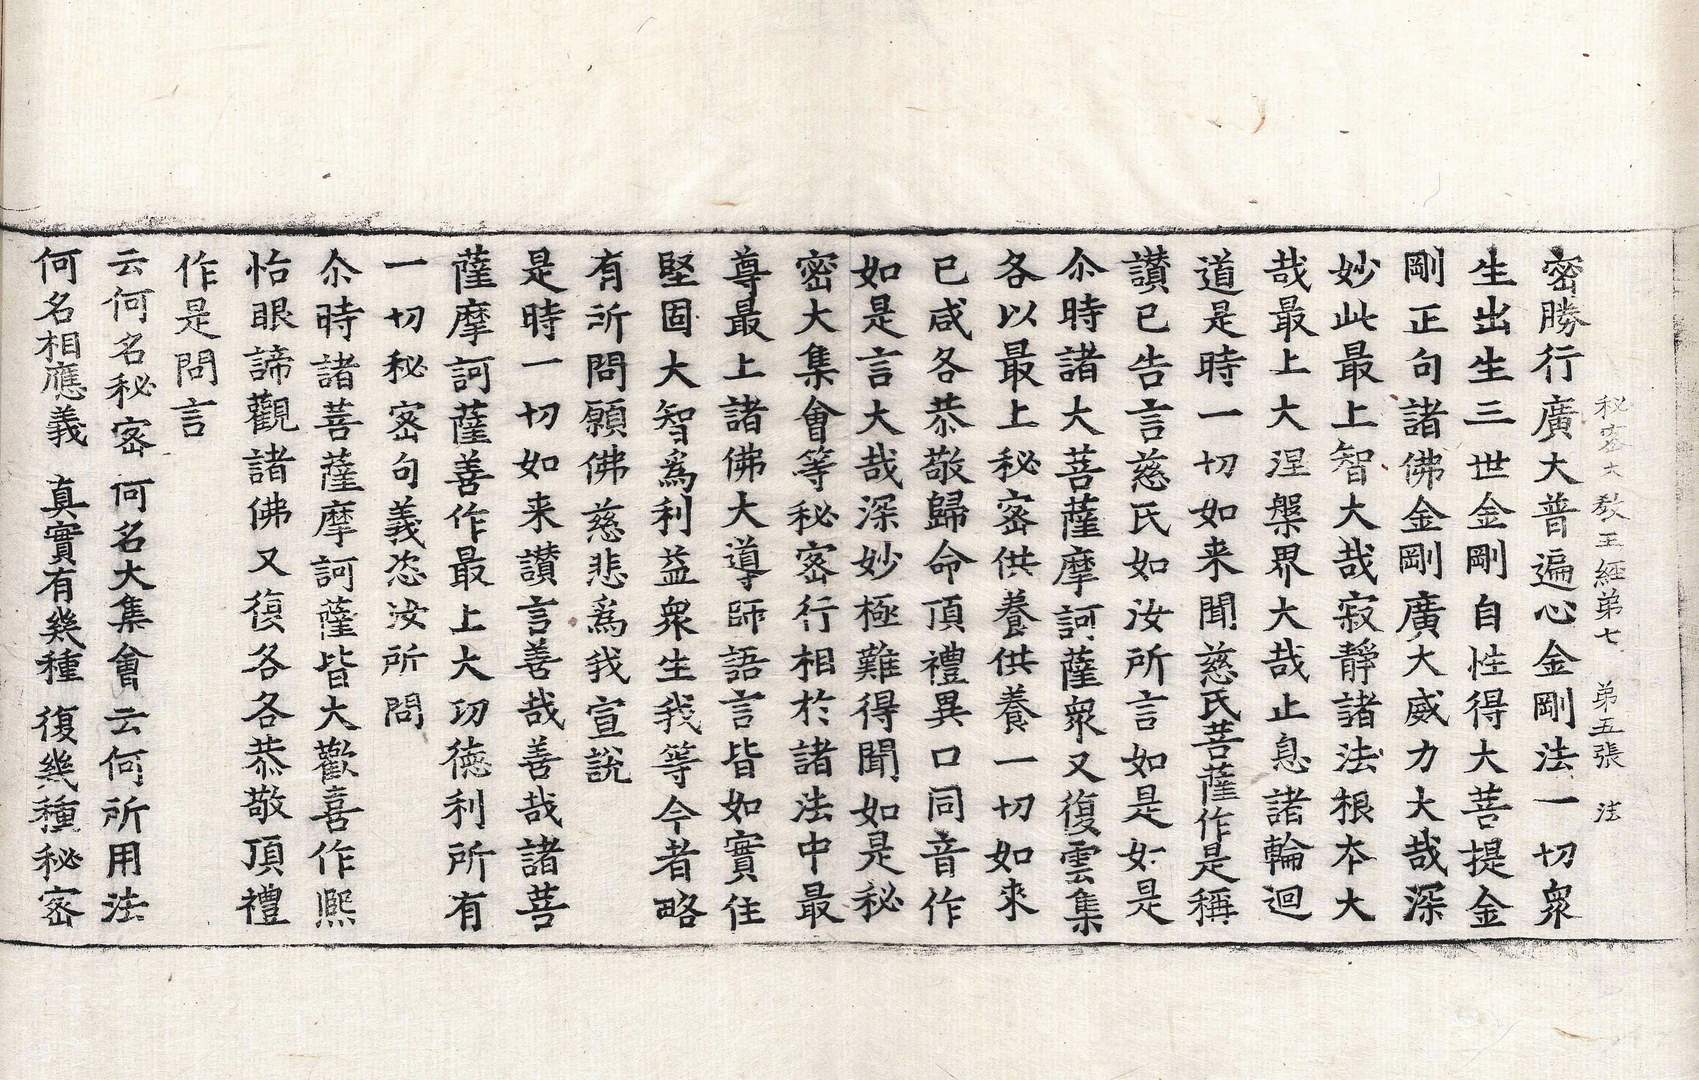 秘密大教王經第七 第五張 法
密勝行廣大普遍心金剛法一切衆
生出生三世金剛自性得大菩提金
剛正句諸佛金剛廣大威力大哉深
妙此最上智大哉寂靜諸法根本大
哉最上大涅槃界大哉止息諸輪迴
道是時一切如来聞慈氏菩薩作是稱
讃已告言慈氏如汝所言如是如是
尒時諸大菩薩摩訶薩衆又復雲集
各以最上秘密供養供養一切如来
已咸各恭敬歸命頂禮異口同音作
如是言大哉深妙極難得聞如是秘
密大集會等秘密行相於諸法中最
尊最上諸佛大導師語言皆如實住
堅固大智爲利益衆生我等今者略
有所問願佛慈悲爲我宣說
是時一切如来讃言善哉善哉諸菩
薩摩訶薩善作最上大功德利所有
一切秘密句義恣汝所問
尒時諸菩薩摩訶薩皆大歡喜作熈
怡眼諦觀諸佛又復各各恭敬頂禮
作是問言
云何名秘密 何名大集會 云何所用法
何名相應義 真實有幾種 復幾種秘密